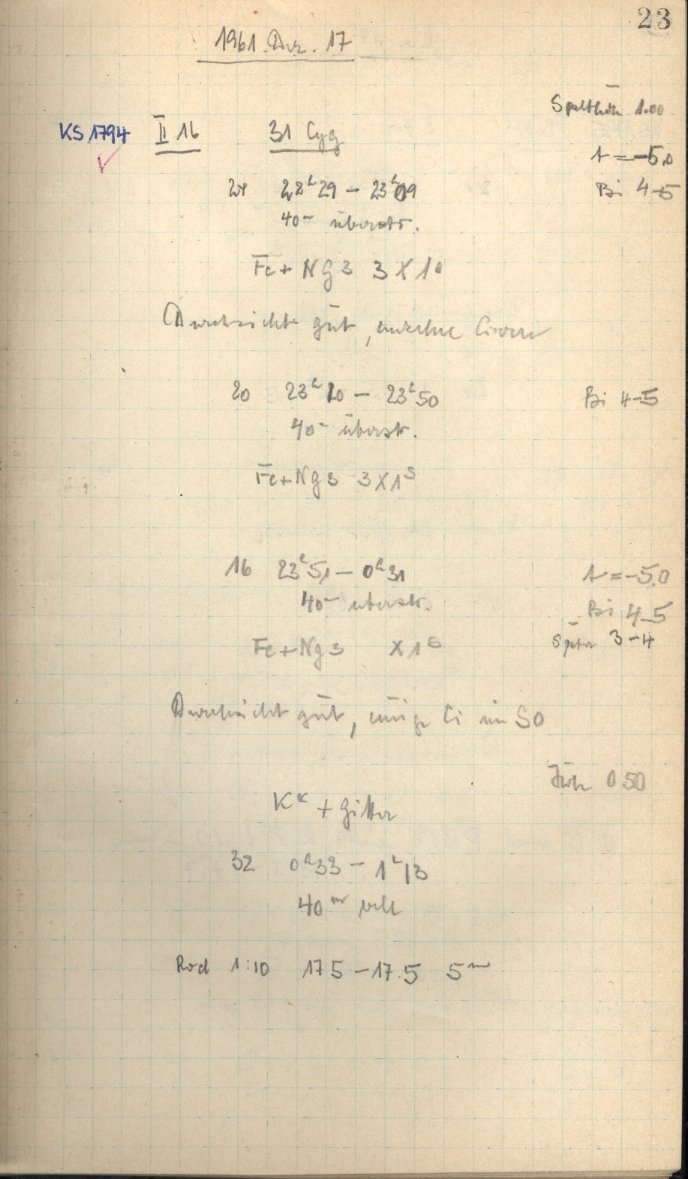 23
1961. Dez. 17
Spalthöhe 1.00
KS 1794 II 16 31 Cyg
t = -5.0
24 22h29 - 23h09 Bi 4-5
40m überstr.
Fe + Ng 3 3 X 1s
Durchsicht gut, einzelne Cirren
20 23h10 - 23h50 Bi 4-5
40m überstr.
Fe + Ng 3 3 X 1s
16 23h51 - 0h31 t = -5.0
40m überstr. Bi 4-5
Fe + Ng 3 X 1s später 3-4
Durchsicht gut, einige Ci im SO
0 50
K* + Gitter
32 0h33 - 1h13
40m
Rod 1:10 17.5 - 17.5 5m